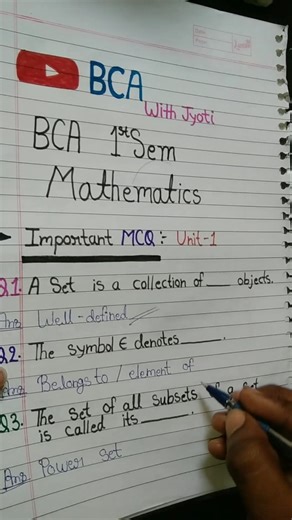 BCA
With Jyoti
BCA 1st Sem
Mathematics
Important MCQ :- Unit-1
Q1. A Set is a collection of ___ objects.
Ans Well-defined
Q2. The symbol ∈ denotes ___.
Ans Belongs to / element of
Q3. The set of all subsets of a set
is called its ___.
Ans Power set